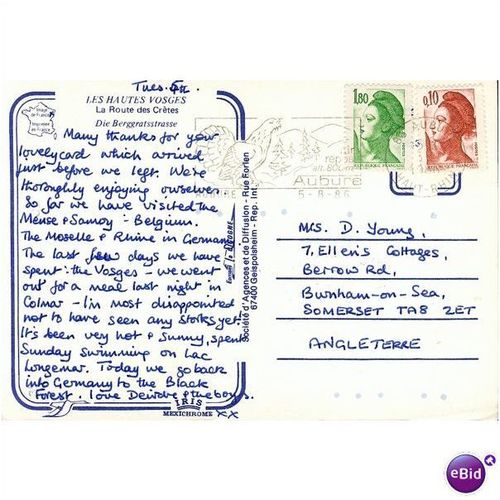 Tues. 5th.
LES HAUTES VOSGES
La Route des Crêtes
Die Berggratsstrasse
Many thanks for your
lovely card which arrived
just before we left. We're
thoroghly enjoying ourselves.
So far we have visited the
Meuse & Samoy - Belgium.
The Moselle & Rhine in Germany
The last few days we have
spent: the Vosges - we went
out for a meal last night in
Colmar - I'm most disappointed
not to have seen any storks yet.
It's been very hot & sunny, spent
Sunday swimming on Lac
Longemer. Today we go back
into Germany to the Black
Forest. love Deirdre & the boys.
xx
IRIS
MEXICHROME
Société d'Agences et de Diffusion - Rue Forlen
67400 Geispolsheim - Rep. Int.
Aubure
5-8-86
1,80
REPUBLIQUE FRANÇAISE
0,10
REPUBLIQUE FRANÇAISE
Mrs. D. Young,
7, Ellen's Cottages,
Berrow Rd,
Burnham-on-Sea,
SOMERSET TA8 2ET
ANGLETERRE
eBid